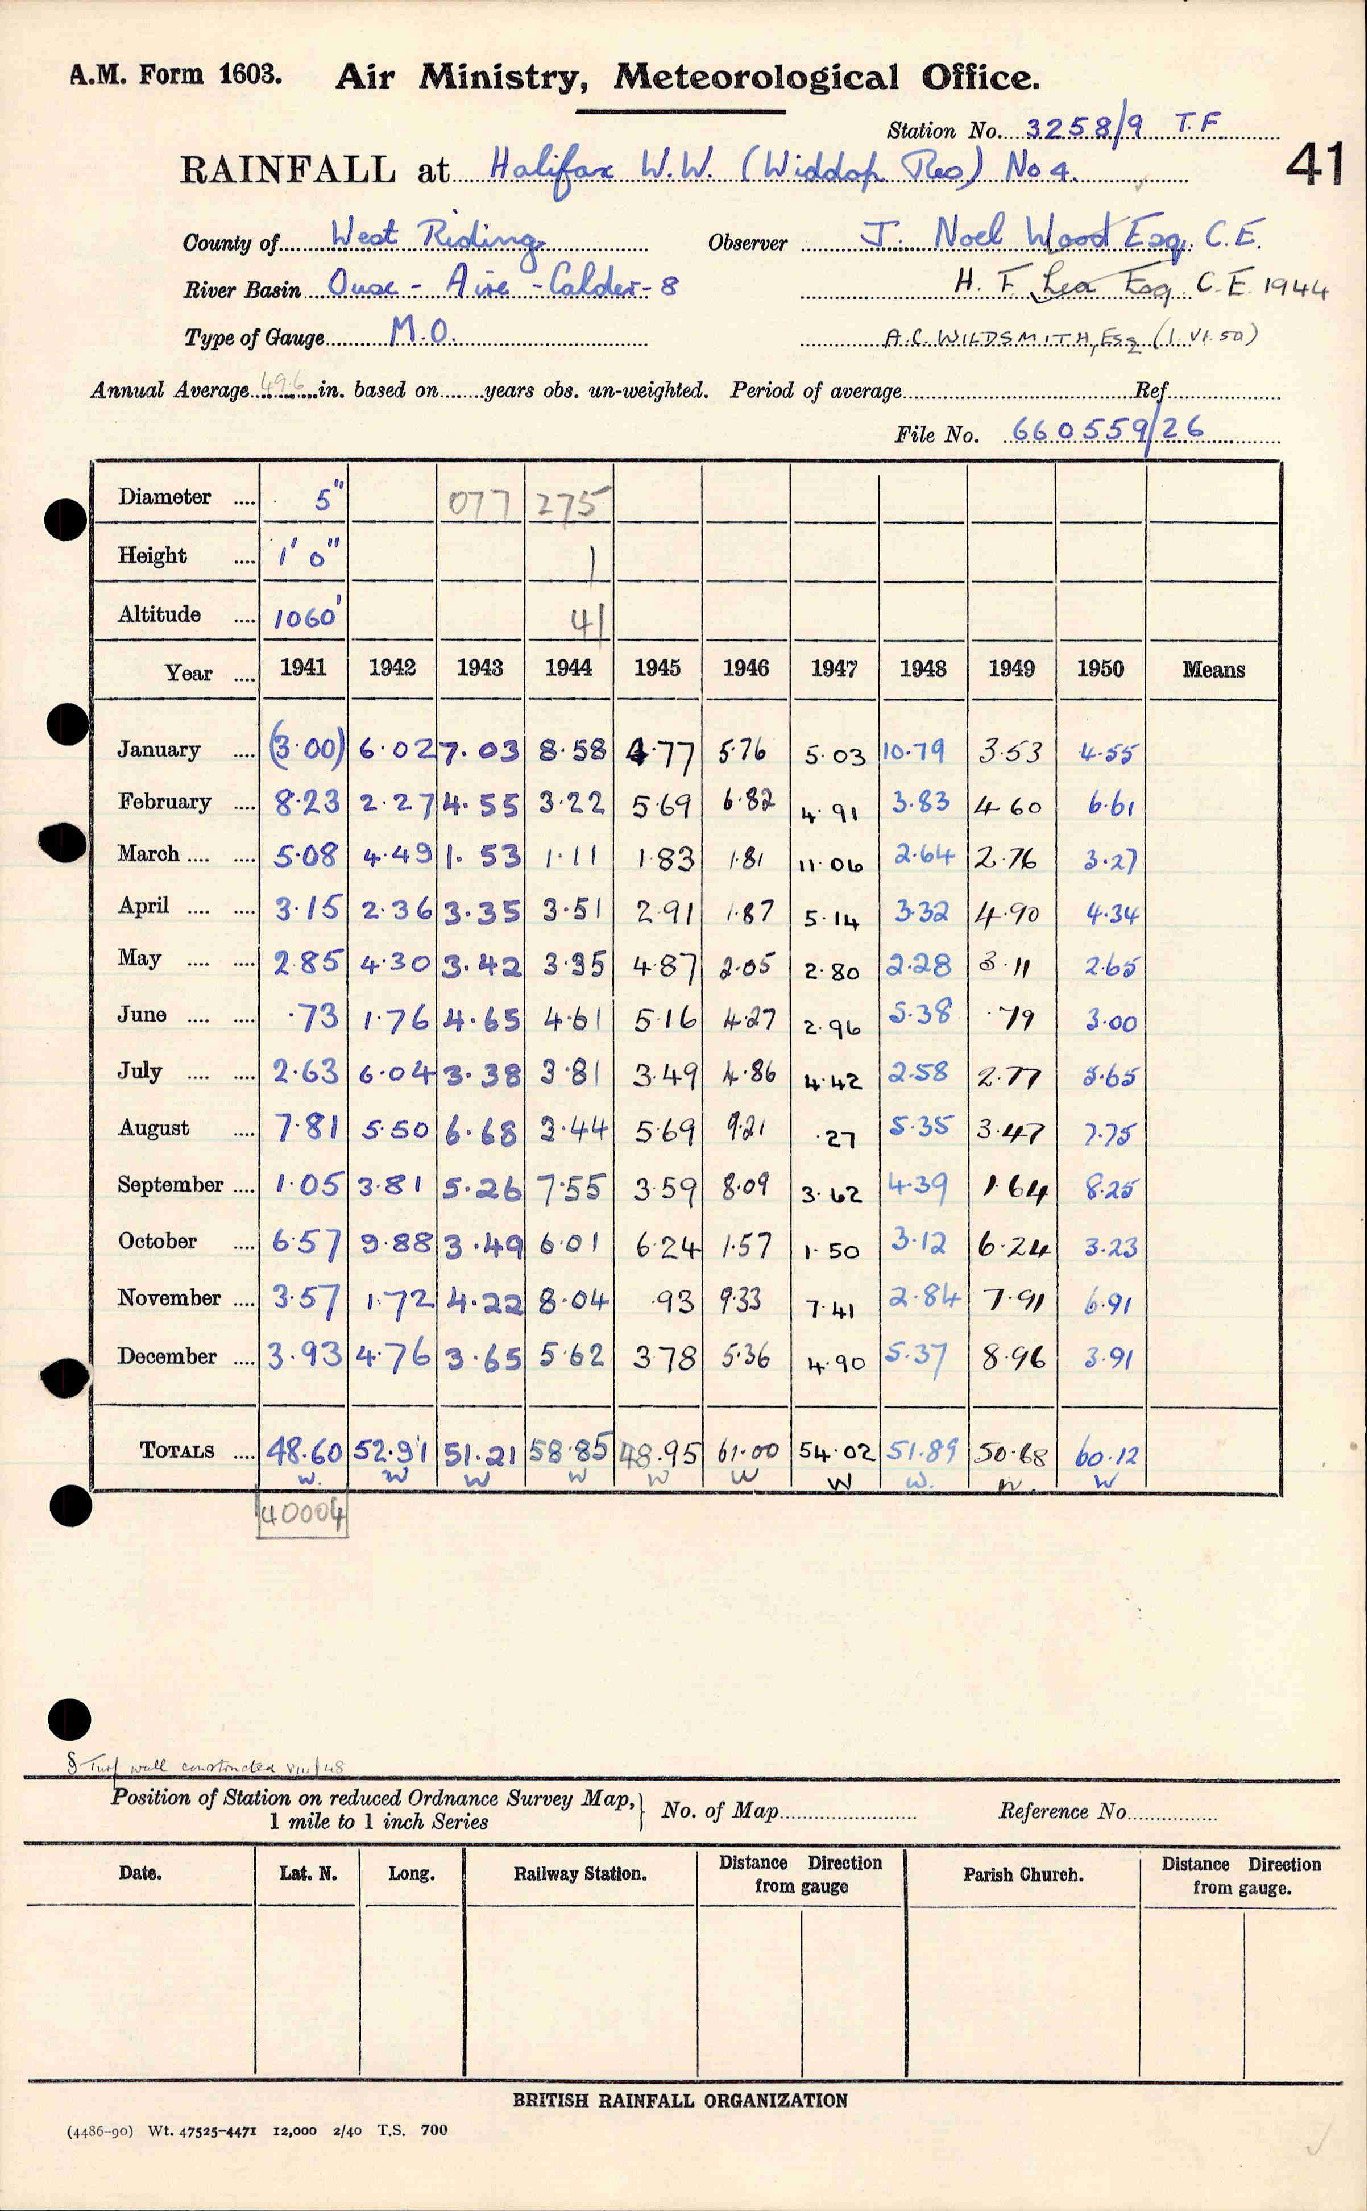 A.M. Form 1603. Air Ministry, Meteorological Office.
Station No. 3258/9 T.F.
41
RAINFALL at Halifax W.W. (Widdop Res) No 4.
County of West Riding Observer J. Noel Wood Esq. C.E.
River Basin Ouse - Aire - Calder - 8 H. F. Lea Esq C.E. 1944
Type of Gauge M.O. A.C. WILDSMITH, Esq (1.VI.50)
Annual Average 49.6 in. based on years obs. un-weighted. Period of average Ref
File No. 660559/26
Diameter .... 5" 077 275
Height .... 1' 0" 1
Altitude .... 1060' 41
Year .... 1941 1942 1943 1944 1945 1946 1947 1948 1949 1950 Means
January .... (3.00) 6.02 7.03 8.58 4.77 5.76 5.03 10.79 3.53 4.55
February .... 8.23 2.27 4.55 3.22 5.69 6.82 4.91 3.83 4.60 6.61
March .... .... 5.08 4.49 1.53 1.11 1.83 1.81 11.06 2.64 2.76 3.27
April .... .... 3.15 2.36 3.35 3.51 2.91 1.87 5.14 3.32 4.90 4.34
May .... .... 2.85 4.30 3.42 3.35 4.87 2.05 2.80 2.28 3.11 2.65
June .... .... .73 1.76 4.65 4.61 5.16 4.27 2.96 5.38 .79 3.00
July .... .... 2.63 6.04 3.38 3.81 3.49 4.86 4.42 2.58 2.77 5.65
August .... 7.81 5.50 6.68 3.44 5.69 9.21 .27 5.35 3.47 7.75
September .... 1.05 3.81 5.26 7.55 3.59 8.09 3.62 4.39 1.64 8.25
October .... 6.57 9.88 3.49 6.01 6.24 1.57 1.50 3.12 6.24 3.23
November .... 3.57 1.72 4.22 8.04 .93 9.33 7.41 2.84 7.91 6.91
December .... 3.93 4.76 3.65 5.62 3.78 5.36 4.90 5.37 8.96 3.91
TOTALS .... 48.60 52.91 51.21 58.85 48.95 61.00 54.02 51.89 50.68 60.12
w. w w w w w w w. w. w
40004
§ Turf wall constructed VIII/48
Position of Station on reduced Ordnance Survey Map, } No. of Map Reference No.
1 mile to 1 inch Series
Date. Lat. N. Long. Railway Station. Distance Direction from gauge Parish Church. Distance Direction from gauge.
BRITISH RAINFALL ORGANIZATION
(4486-90) Wt. 47525-4471 12,000 2/40 T.S. 700